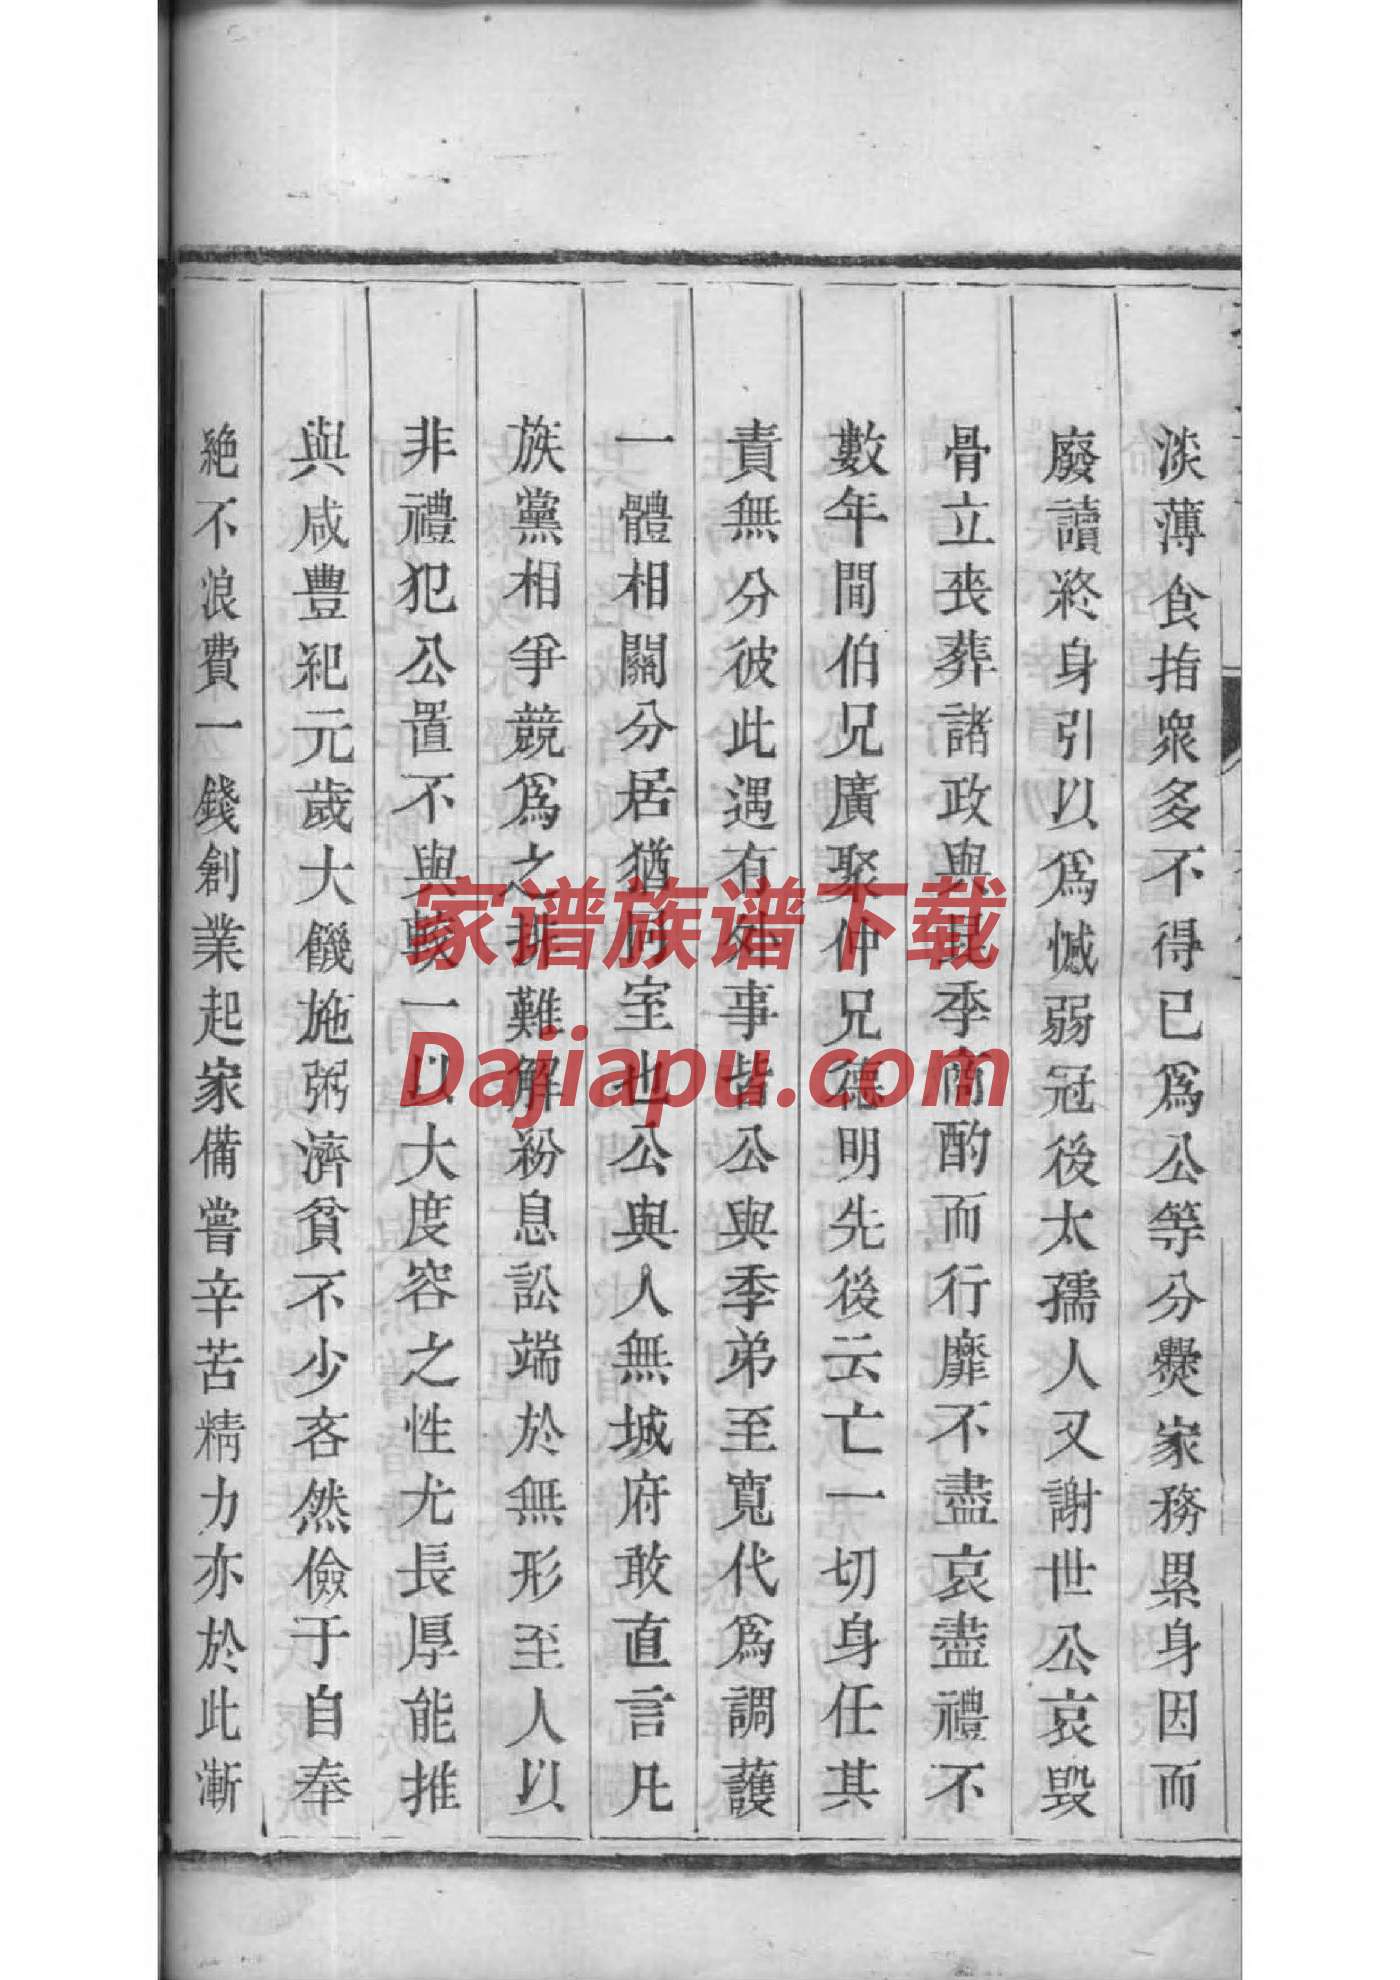 淡薄食指衆多不得已爲公等分爨家務累身因而
廢讀終身引以爲憾弱冠後太孺人又謝世公哀毀
骨立喪葬諸政與昆季商酌而行靡不盡哀盡禮不
數年間伯兄廣聚仲兄德明先後云亡一切身任其
責無分彼此遇有外事皆公與季弟至寬代爲調護
一體相關分居猶同室也公與人無城府敢直言凡
族黨相爭競爲之排難解紛息訟端於無形至人以
非禮犯公置不與較一以大度容之性尤長厚能推
與咸豐紀元歲大饑施粥濟貧不少吝然儉于自奉
絕不浪費一錢創業起家備嘗辛苦精力亦於此漸
家谱族谱下载
Dajiapu.com